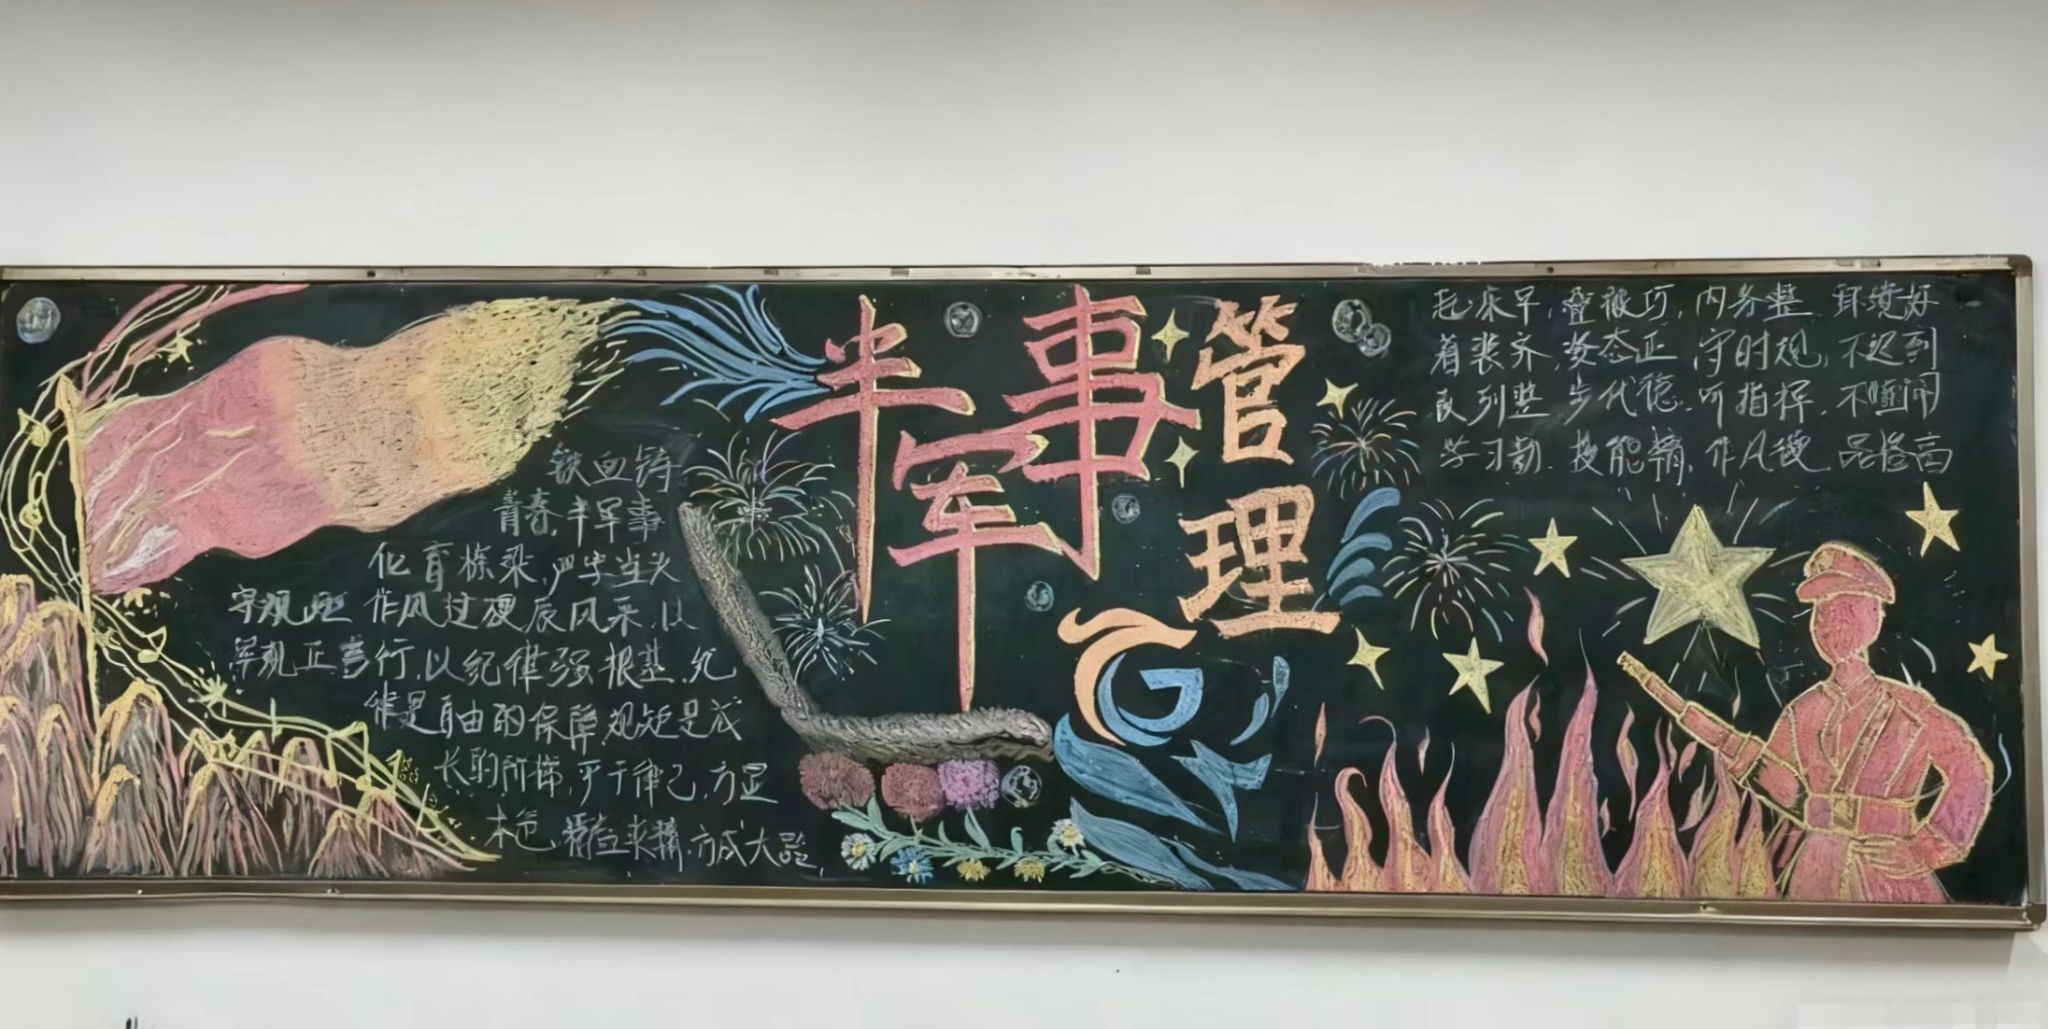 半军事
管理
铁血铸
青春,半军事
化育栋梁,严字当头
守规矩 作风过硬展风采,以
军规正言行,以纪律强根基,纪
律是自由的保障,规矩是成
长的阶梯,严于律己,方足
本色,精益求精,方成大器
起床早,叠被巧,内务整 环境好
着装齐,姿态正 守时规,不迟到
队列整 步代稳,听指挥,不喧闹
学习勤,技能精,作风硬,品格高